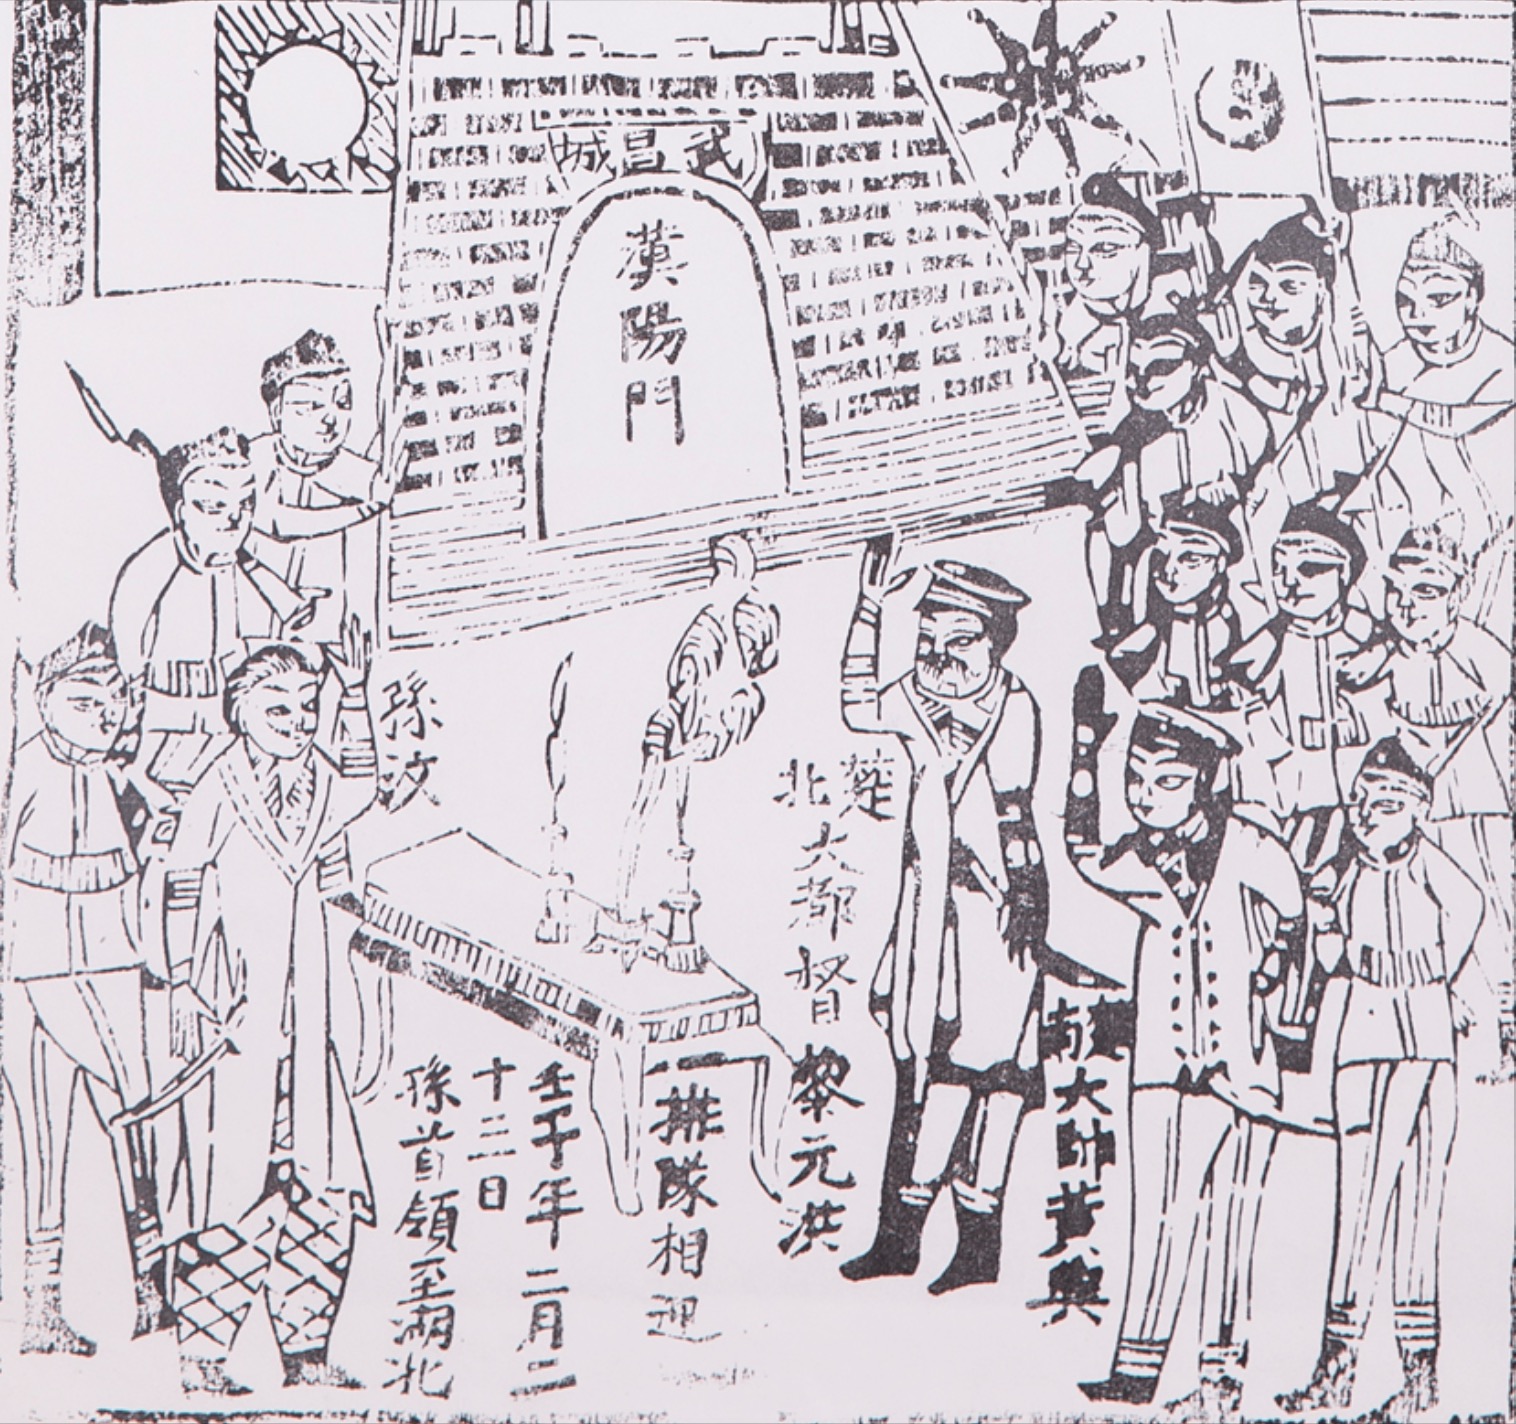 武昌城
漢陽門
孫汶
楚北大都督黎元洪
大帥黃興
壬子年二月二
十三日
孫首領至湖北
排隊相迎